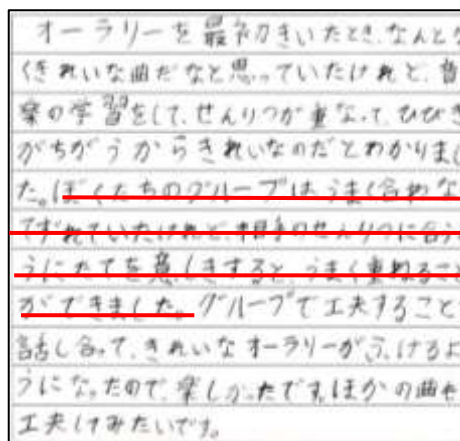 オーラリーを最初きいたとき、なんとな
くきれいな曲だなと思っていたけれど、音
楽の学習をして、せんりつが重なって、ひびき
がちがうからきれいなのだとわかりまし
た。ぼくたちのグループは、うまく合わな
てずれていたけれど、相手のせんりつに合う
うにたてを意しきすると、うまく重ねること
ができました。グループで工夫すること
話し合って、きれいなオーラリーがふけるよ
うになったので、楽しかったです。ほかの曲も
工夫してみたいです。